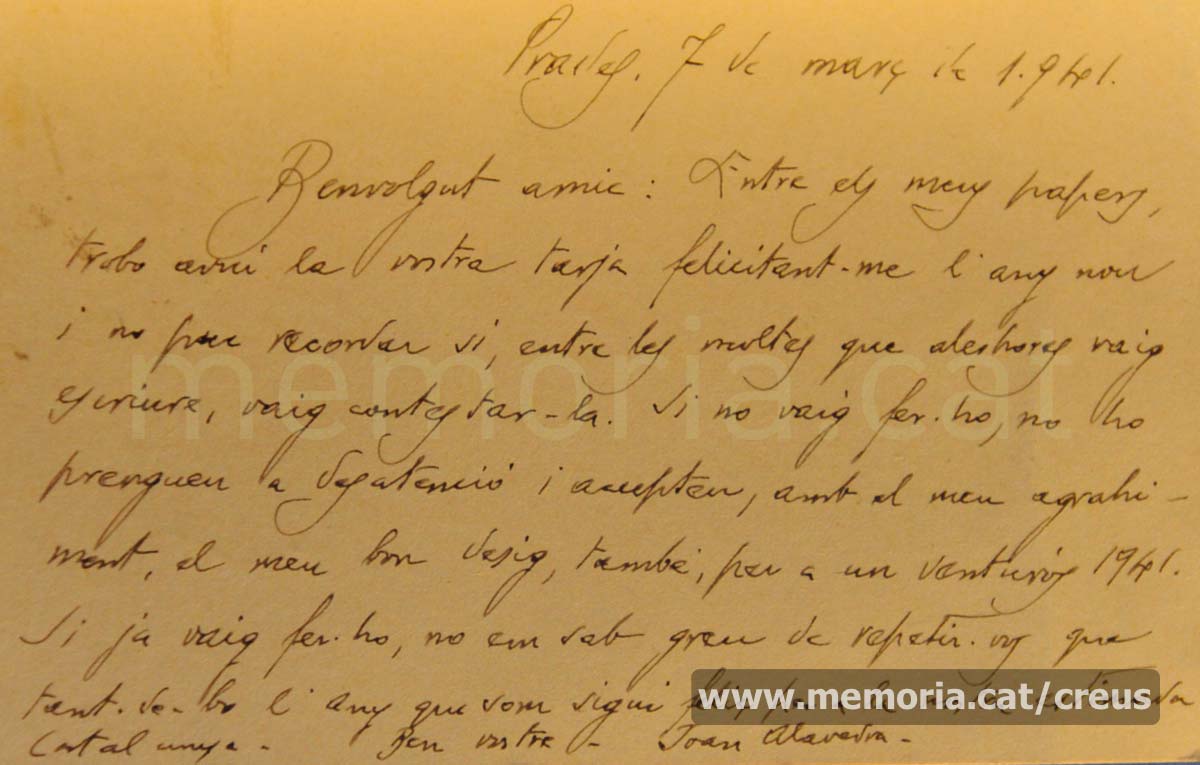 Prades, 7 de març de 1.941.
Benvolgut amic: Entre els meus papers,
trobo avui la vostra tarja felicitant-me l'any nou
i no puc recordar si, entre les moltes que aleshores vaig
escriure, vaig contestar-la. Si no vaig fer-ho, no ho
prengueu a desatenció i accepteu, amb el meu agrahi-
ment, el meu bon desig, també, per a un venturós 1941.
Si ja vaig fer-ho, no em sab greu de repetir-vos que
tant-de-bo l'any que som sigui feliç
Catalunya - Ben vostre - Joan Alavedra -
memoria.cat
www.memoria.cat/creus